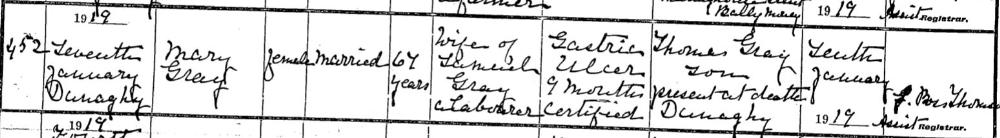 1919
(Ballymacy 1919 Assist Registrar.
452 Seventh January Dunaghy
Mary Gray
Female
Married
67 years
Wife of Samuel Gray a Labourer
Gastric Ulcer 9 Months Certified
Thomas Gray son present at death Dunaghy
Tenth January 1919
Thomas
Assist Registrar.
1919